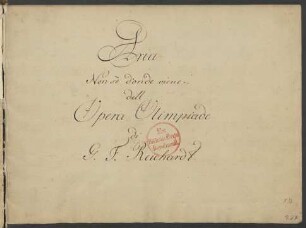 Aria
Non sò donde viene
dell
Opera Olimpiade
di
G. F. Reichardt